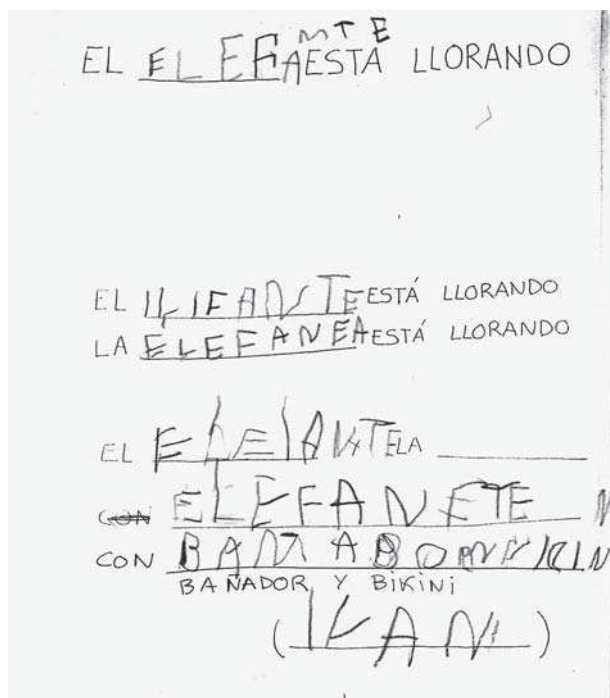 EL ELEFANTE ESTÁ LLORANDO
EL ILIFANTE ESTÁ LLORANDO
LA ELEFANEA ESTÁ LLORANDO
EL ELEFANTE LA
CON ELEFANETE N
CON BAÑABO
BAÑADOR Y BIKINI
(IVAN)